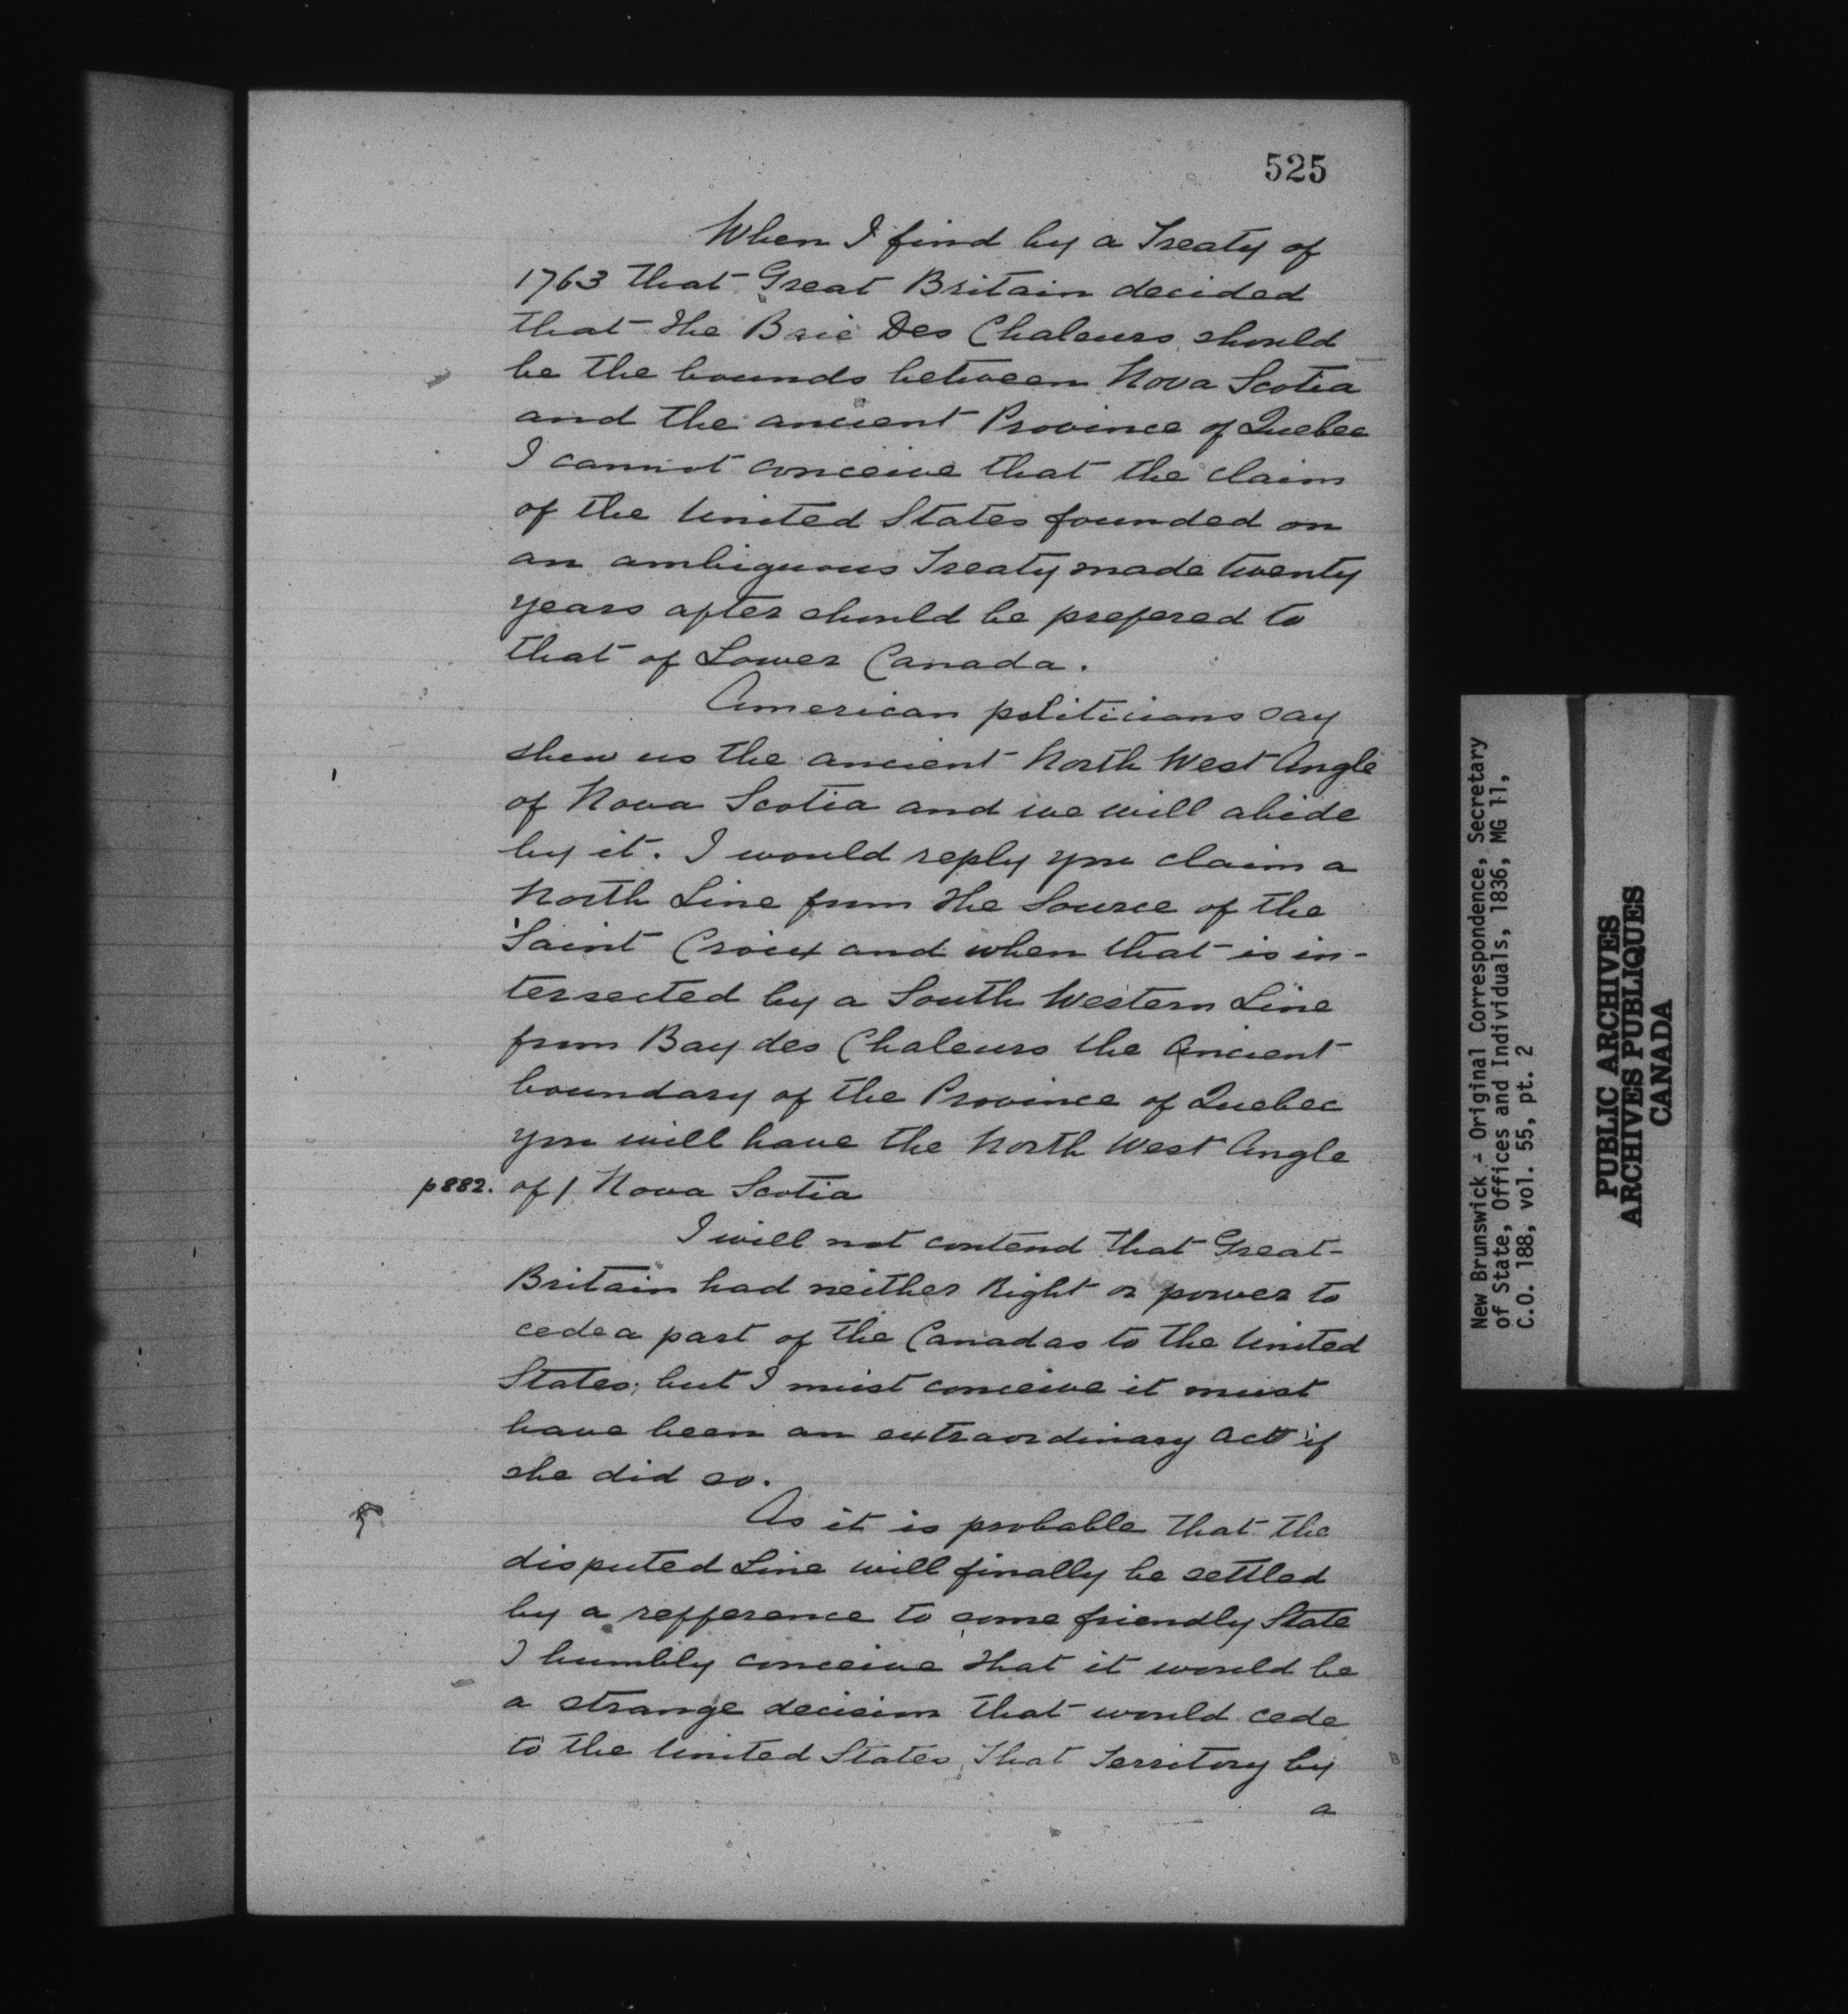 525
When I find by a Treaty of
1763 that Great Britain decided
that the Baie Des Chaleurs should
be the bounds between Nova Scotia
and the ancient Province of Quebec
I cannot conceive that the claim
of the United States founded on
an ambiguous Treaty made twenty
years after should be prefered to
that of Lower Canada.
American politicians say
shew us the ancient North West Angle
of Nova Scotia and we will abide
by it. I would reply you claim a
North Line from the Source of the
Saint Croix and when that is in-
tersected by a South Western Line
from Bay des Chaleurs the Ancient
boundary of the Province of Quebec
you will have the North West Angle
p882. of / Nova Scotia
I will not contend that Great
Britain had neither Right or power to
cede a part of the Canadas to the United
States; but I must conceive it must
have been an extraordinary act if
she did so.
As it is probable that the
disputed Line will finally be settled
by a refference to some friendly State
I humbly conceive that it would be
a strange decision that would cede
to the United States, that Territory by
a
New Brunswick - Original Correspondence, Secretary
of State, Offices and Individuals, 1836, MG 11,
C.O. 188, vol. 55, pt. 2
PUBLIC ARCHIVES
ARCHIVES PUBLIQUES
CANADA